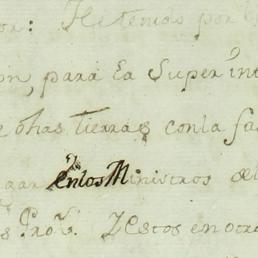 or: He tenido por
on, para la Super in
e ohas tierras con la fa
gar en los Ministros de
s Pro.s Y estos en otra